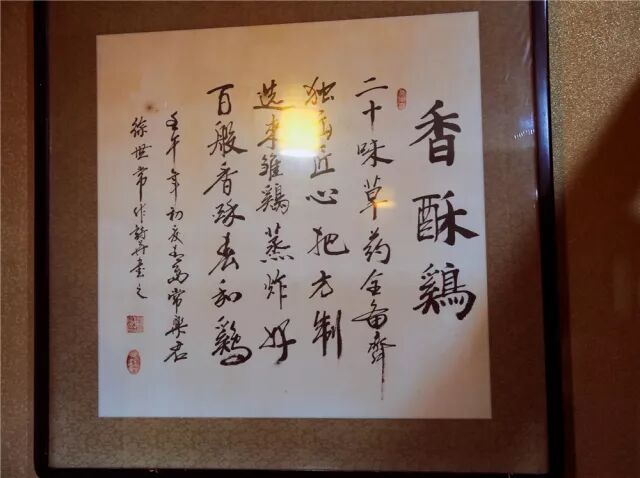 香酥鷄
二十味草药全备齊
独具匠心把方制
选来雏鷄蒸炸好
百般香酥長和鷄
壬午年初夏为常兴君
徐世常作诗并书之